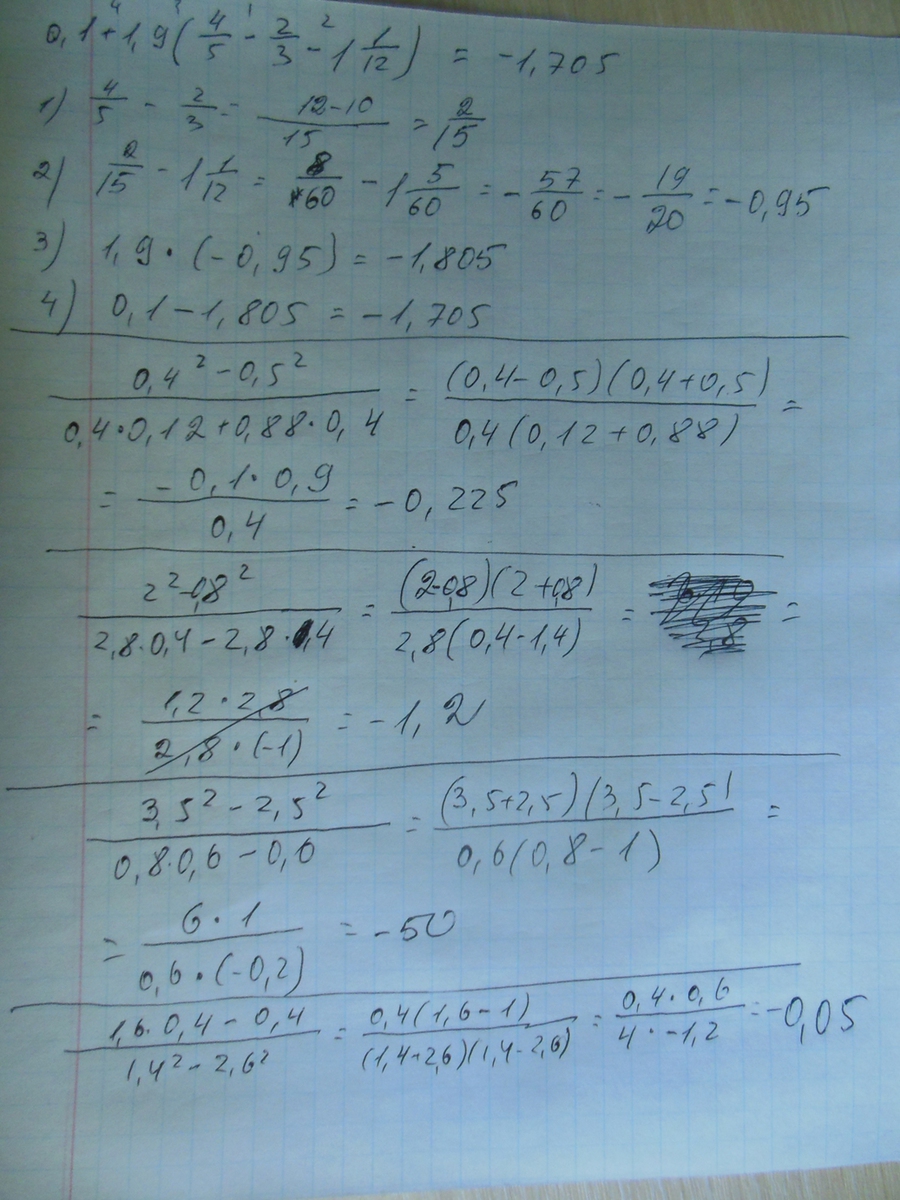 0,1+1,9(4/5 - 2/3 - 1 1/12) = -1,705
1) 4/5 - 2/3 = (12-10)/15 = 2/15
2) 2/15 - 1 1/12 = 8/60 - 1 5/60 = -57/60 = -19/20 = -0,95
3) 1,9·(-0,95) = -1,805
4) 0,1-1,805 = -1,705
(0,4² - 0,5²)/(0,4·0,12+0,88·0,4) = ((0,4-0,5)(0,4+0,5))/(0,4(0,12+0,88)) =
= (-0,1·0,9)/0,4 = -0,225
(2²-0,8²)/(2,8·0,4-2,8·1,4) = ((2-0,8)(2+0,8))/(2,8(0,4-1,4)) = =
= (1,2·2,8)/(2,8·(-1)) = -1,2
(3,5²-2,5²)/(0,8·0,6-0,6) = ((3,5+2,5)(3,5-2,5))/(0,6(0,8-1)) =
= (6·1)/(0,6·(-0,2)) = -50
(1,6·0,4-0,4)/(1,4²-2,6²) = (0,4(1,6-1))/((1,4+2,6)(1,4-2,6)) = (0,4·0,6)/(4·-1,2) = -0,05